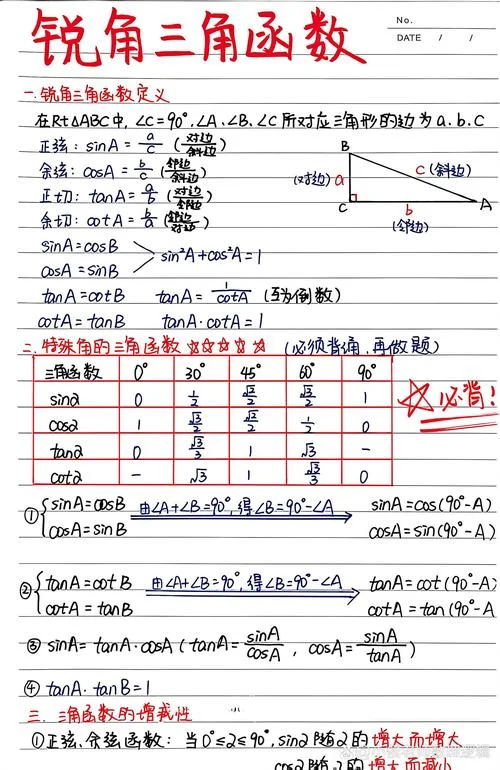 锐角三角函数
No.
DATE / /
一.锐角三角函数定义
在Rt△ABC中,∠C=90°,∠A、∠B、∠C所对应三角形的边为a、b、c
正弦: sinA = a/c (对边/斜边)
余弦: cosA = b/c (邻边/斜边)
正切: tanA = a/b (对边/邻边)
余切: cotA = b/a (邻边/对边)
B
(对边) a
c (斜边)
C
b
A
(邻边)
sinA=cosB
cosA=sinB
sin²A+cos²A=1
tanA=cotB tanA= 1/cotA (互为倒数)
cotA=tanB tanA·cotA=1
二.特殊角的三角函数 ☆☆☆☆☆ (必须背诵,再做题)
三角函数 0° 30° 45° 60° 90°
sin2 0 1/2 √2/2 √3/2 1
cos2 1 √3/2 √2/2 1/2 0
tan2 0 √3/3 1 √3 -
cot2 - √3 1 √3/3 0
☆必背!
① sinA=cosB 由∠A+∠B=90°,得∠B=90°-∠A sinA=cos(90°-A)
cosA=sinB cosA=sin(90°-A)
② tanA=cotB 由∠A+∠B=90°,得∠B=90°-∠A tanA=cot(90°-A)
cotA=tanB cotA=tan(90°-A
③ sinA=tanA·cosA(tanA= sinA/cosA , cosA= sinA/tanA )
④ tanA·tanB=1
三.三角函数的增减性
①正弦、余弦函数: 当0°≤2≤90°,sin2随2的增大而增大
cos2随2的增大而减小